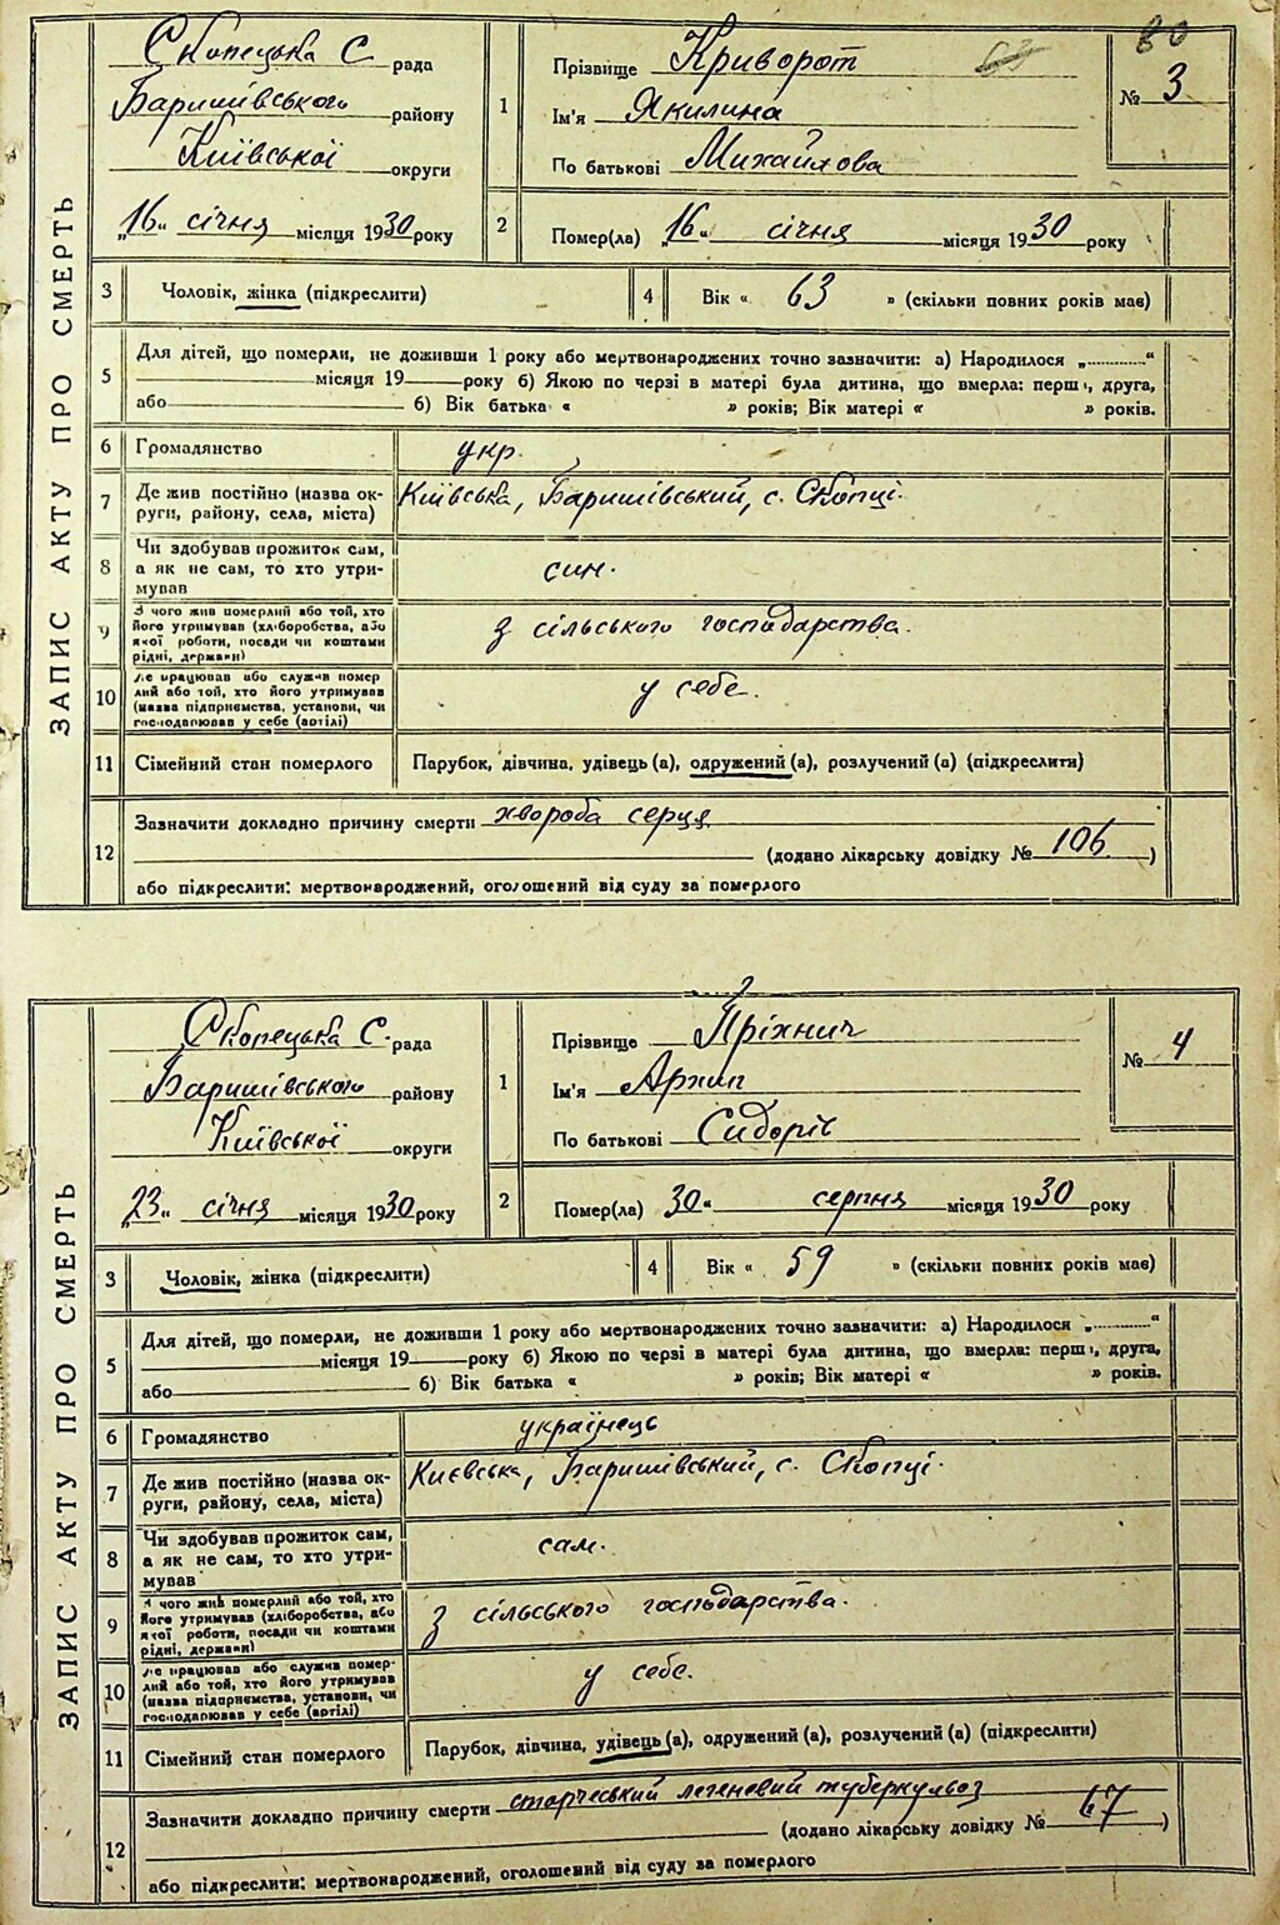 80
ЗАПИС АКТУ ПРО СМЕРТЬ
Скопецька С. рада
Баришівського району
Київської округи
„16“ січня місяця 1930 року
1
Прізвище Криворот
Ім'я Якилина
По батькові Михайлова
№ 3
2
Помер(ла) „16“ січня місяця 1930 року
3 Чоловік, жінка (підкреслити)
4 Вік « 63 » (скільки повних років має)
5 Для дітей, що померли, не доживши 1 року або мертвонароджених точно зазначити: а) Народилося „............“
місяця 19 року б) Якою по черзі в матері була дитина, що вмерла: перш, друга,
або б) Вік батька « » років; Вік матері « » років.
6 Громадянство укр.
7 Де жив постійно (назва ок-
руги, району, села, міста)
Київська, Баришівський, с. Скопці.
8 Чи здобував прожиток сам,
а як не сам, то хто утри-
мував
син.
9 З чого жив померлий або той, хто
його утримував (хліборобства, або
якої роботи, посади чи коштами
рідні, держави)
З сільського господарства.
10 Де працював або служив помер
лий або той, хто його утримував
(назва підприємства, установи, чи
господарював у себе (артілі)
у себе.
11 Сімейний стан померлого Парубок, дівчина, удівець (а), одружений (а), розлучений (а) (підкреслити)
12 Зазначити докладно причину смерти хвороба серця
(додано лікарську довідку № 106 )
або підкреслити: мертвонароджений, оголошений від суду за померлого
ЗАПИС АКТУ ПРО СМЕРТЬ
Скопецька С. рада
Баришівського району
Київської округи
„23“ січня місяця 1930 року
1
Прізвище Пріхнич
Ім'я Архип
По батькові Сидорів
№ 4
2
Помер(ла) 30“ серпня місяця 1930 року
3 Чоловік, жінка (підкреслити)
4 Вік « 59 » (скільки повних років має)
5 Для дітей, що померли, не доживши 1 року або мертвонароджених точно зазначити: а) Народилося „............“
місяця 19 року б) Якою по черзі в матері була дитина, що вмерла: перш, друга,
або б) Вік батька « » років; Вік матері « » років.
6 Громадянство українець
7 Де жив постійно (назва ок-
руги, району, села, міста)
Києвська, Баришівський, с. Скопці.
8 Чи здобував прожиток сам,
а як не сам, то хто утри-
мував
сам.
9 З чого жив померлий або той, хто
його утримував (хліборобства, або
якої роботи, посади чи коштами
рідні, держави)
З сільського господарства.
10 Де працював або служив помер-
лий або той, хто його утримував
(назва підприємства, установи, чи
господарював у себе (артілі)
у себе.
11 Сімейний стан померлого Парубок, дівчина, удівець (а), одружений (а), розлучений (а) (підкреслити)
12 Зазначити докладно причину смерти старчеський легеневий туберкульоз
(додано лікарську довідку № 67 )
або підкреслити: мертвонароджений, оголошений від суду за померлого